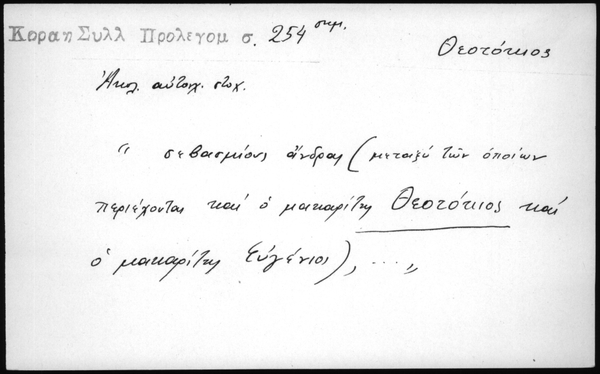 Κοραη Συλλ Προλεγομ σ. 254 σημ.
Θεοτόκιος
Ἀκολ. αὐτοχ. στοχ.
“ σεβασμίους ἄνδρας (μεταξὺ τῶν ὁποίων
περιέχονται καὶ ὁ μακαρίτης Θεοτόκιος καὶ
ὁ μακαρίτης Εὐγένιος), ...„